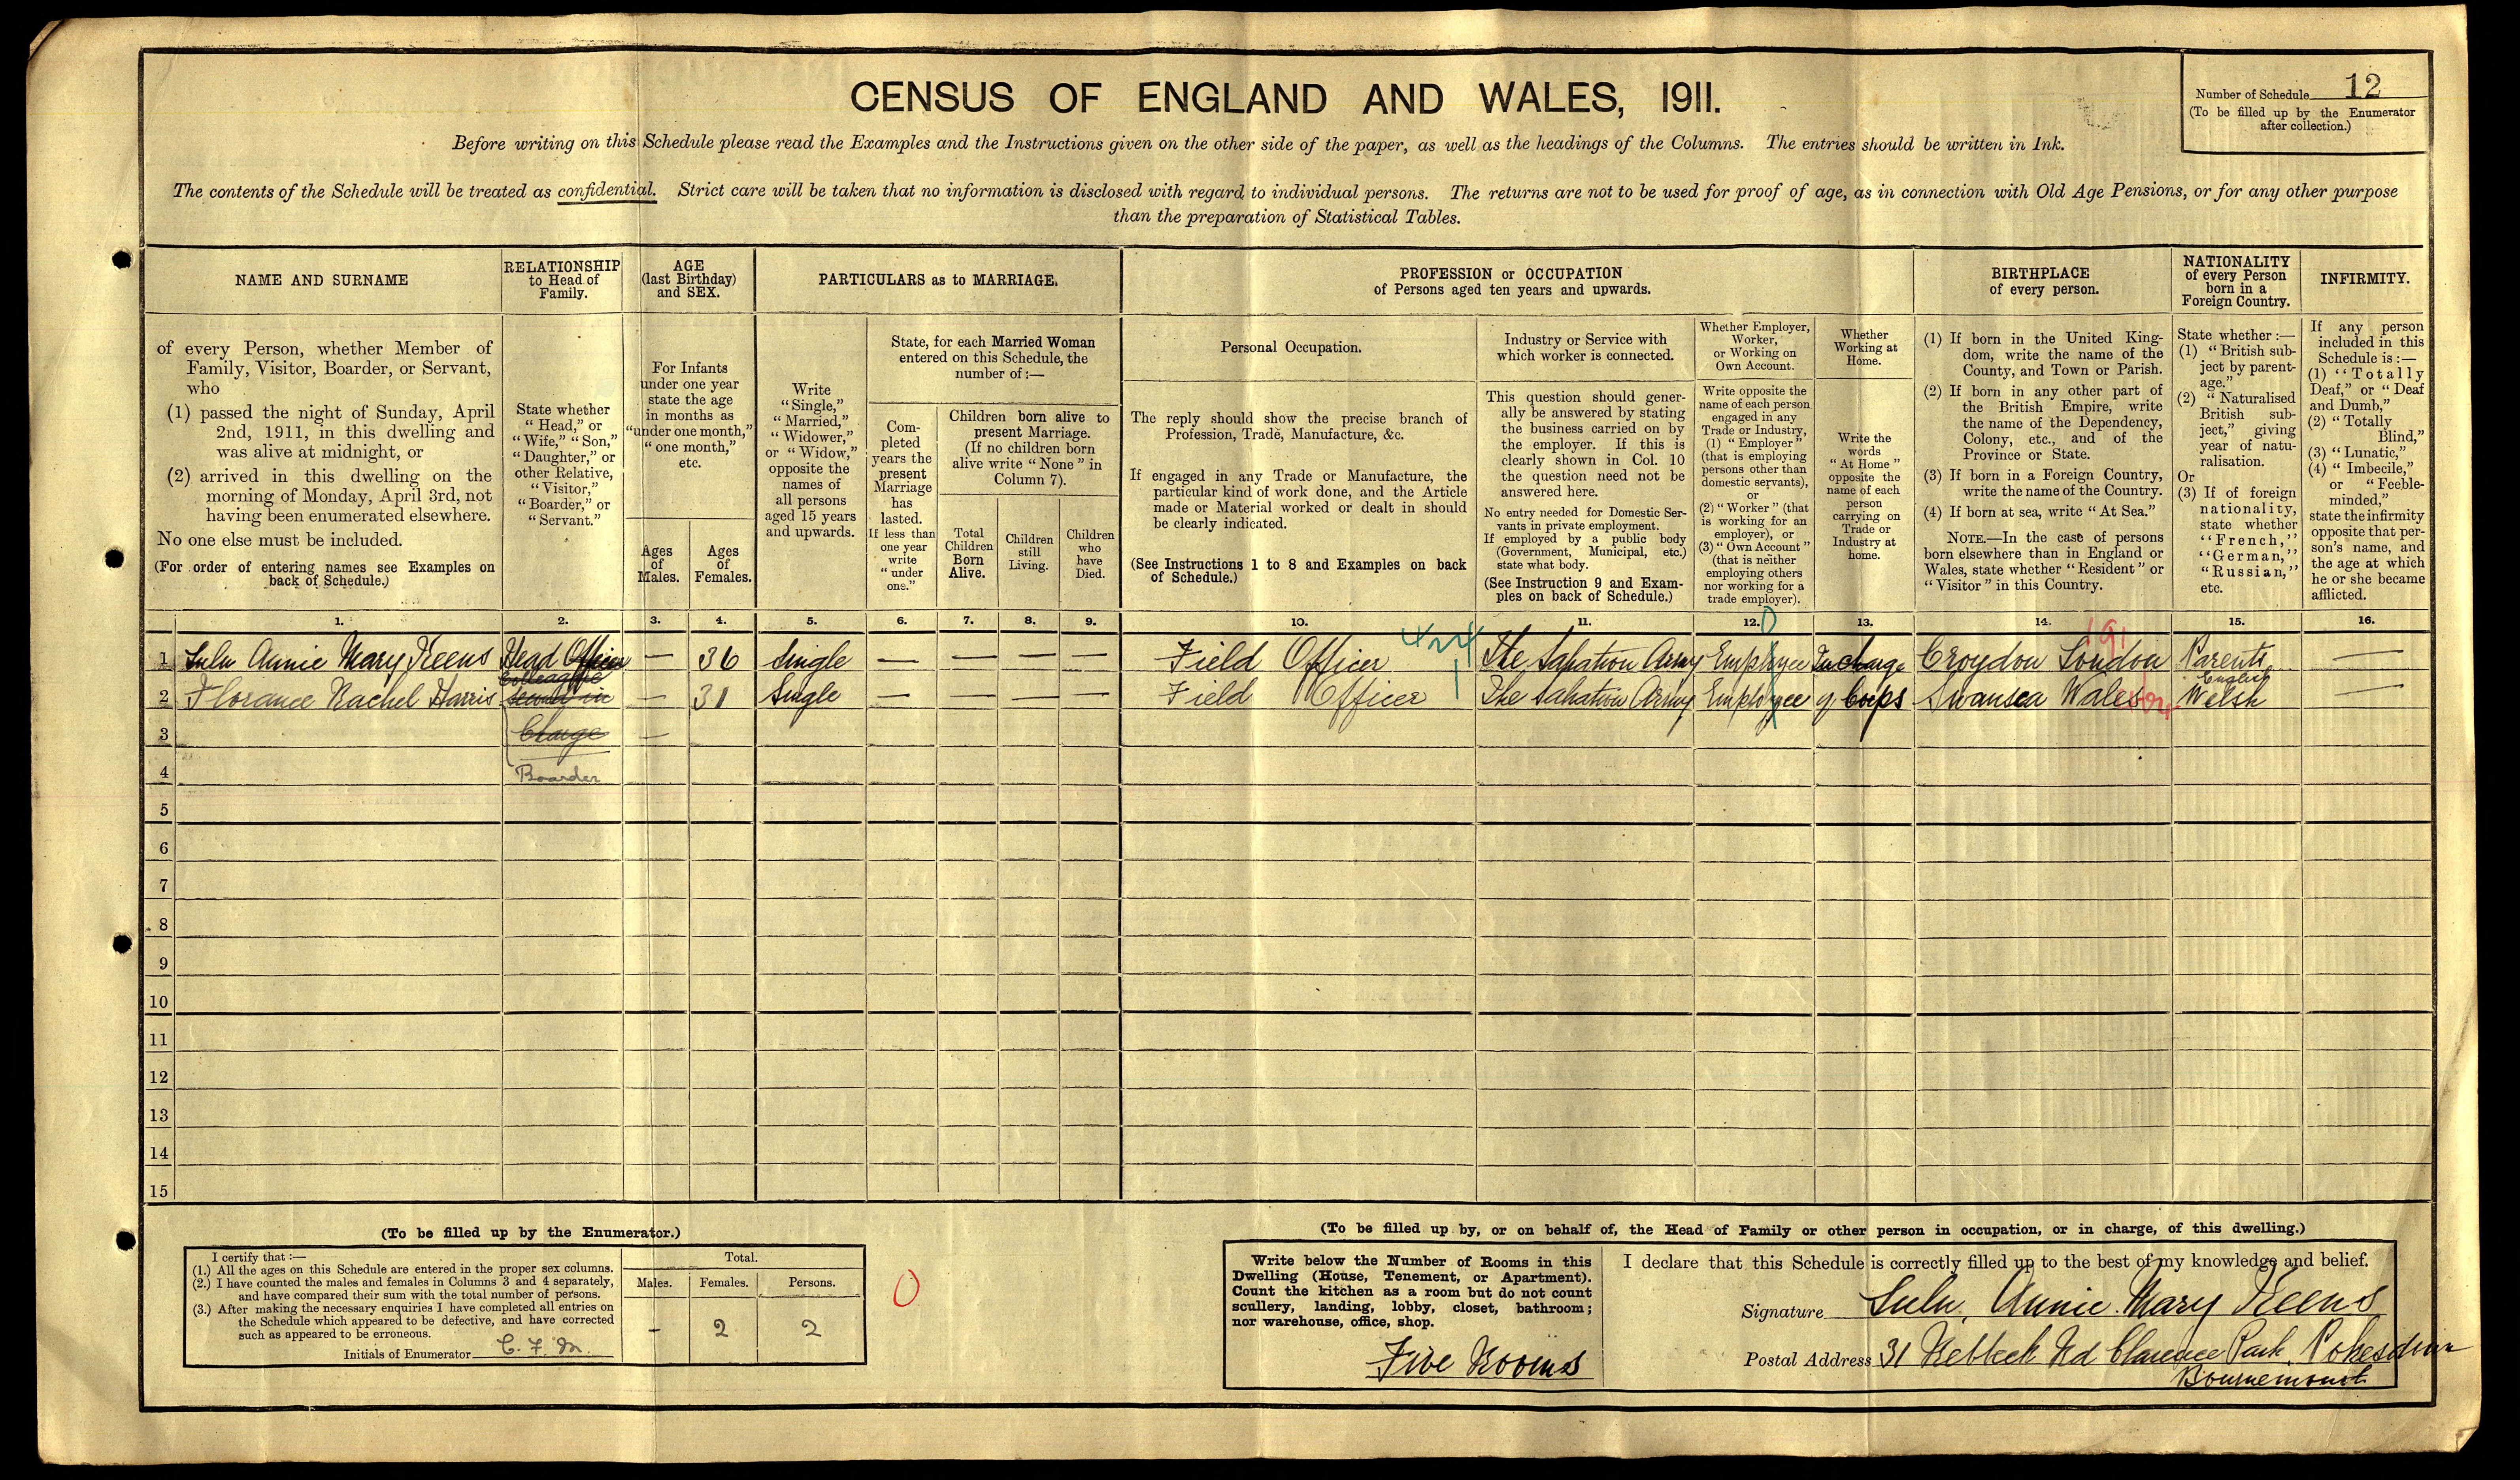 CENSUS OF ENGLAND AND WALES, 1911.
Number of Schedule 12
(To be filled up by the Enumerator
after collection.)
Before writing on this Schedule please read the Examples and the Instructions given on the other side of the paper, as well as the headings of the Columns. The entries should be written in Ink.
The contents of the Schedule will be treated as confidential. Strict care will be taken that no information is disclosed with regard to individual persons. The returns are not to be used for proof of age, as in connection with Old Age Pensions, or for any other purpose
than the preparation of Statistical Tables.
NAME AND SURNAME
of every Person, whether Member of
Family, Visitor, Boarder, or Servant,
who
(1) passed the night of Sunday, April
2nd, 1911, in this dwelling and
was alive at midnight, or
(2) arrived in this dwelling on the
morning of Monday, April 3rd, not
having been enumerated elsewhere.
No one else must be included.
(For order of entering names see Examples on
back of Schedule.)
RELATIONSHIP
to Head of
Family.
State whether
"Head," or
"Wife," "Son,"
"Daughter," or
other Relative,
"Visitor,"
"Boarder," or
"Servant."
AGE
(last Birthday)
and SEX.
For Infants
under one year
state the age
in months as
"under one month,"
"one month,"
etc.
Ages
of
Males.
Ages
of
Females.
PARTICULARS as to MARRIAGE.
Write
"Single,"
"Married,"
"Widower,"
or "Widow,"
opposite the
names of
all persons
aged 15 years
and upwards.
State, for each Married Woman
entered on this Schedule, the
number of:—
Com-
pleted
years the
present
Marriage
has
lasted.
If less than
one year
write
"under
one."
Children born alive to
present Marriage.
(If no children born
alive write "None" in
Column 7).
Total
Children
Born
Alive.
Children
still
Living.
Children
who
have
Died.
PROFESSION or OCCUPATION
of Persons aged ten years and upwards.
Personal Occupation.
The reply should show the precise branch of
Profession, Trade, Manufacture, &c.
If engaged in any Trade or Manufacture, the
particular kind of work done, and the Article
made or Material worked or dealt in should
be clearly indicated.
(See Instructions 1 to 8 and Examples on back
of Schedule.)
Industry or Service with
which worker is connected.
This question should gener-
ally be answered by stating
the business carried on by
the employer. If this is
clearly shown in Col. 10
the question need not be
answered here.
No entry needed for Domestic Ser-
vants in private employment.
If employed by a public body
(Government, Municipal, etc.)
state what body.
(See Instruction 9 and Exam-
ples on back of Schedule.)
Whether Employer,
Worker,
or Working on
Own Account.
Write opposite the
name of each person
engaged in any
Trade or Industry,
(1) "Employer"
(that is employing
persons other than
domestic servants),
or
(2) "Worker" (that
is working for an
employer), or
(3) "Own Account"
(that is neither
employing others
nor working for a
trade employer).
Whether
Working at
Home.
Write the
words
"At Home"
opposite the
name of each
person
carrying on
Trade or
Industry at
home.
BIRTHPLACE
of every person.
(1) If born in the United King-
dom, write the name of the
County, and Town or Parish.
(2) If born in any other part of
the British Empire, write
the name of the Dependency,
Colony, etc., and of the
Province or State.
(3) If born in a Foreign Country,
write the name of the Country.
(4) If born at sea, write "At Sea."
NOTE.—In the case of persons
born elsewhere than in England or
Wales, state whether "Resident" or
"Visitor" in this Country.
NATIONALITY
of every Person
born in a
Foreign Country.
State whether:—
(1) "British sub-
ject by parent-
age."
(2) "Naturalised
British sub-
ject," giving
year of natu-
ralisation.
Or
(3) If of foreign
nationality,
state whether
"French,"
"German,"
"Russian,"
etc.
INFIRMITY.
If any person
included in this
Schedule is:—
(1) "Totally
Deaf," or "Deaf
and Dumb,"
(2) "Totally
Blind,"
(3) "Lunatic,"
(4) "Imbecile,"
or "Feeble-
minded,"
state the infirmity
opposite that per-
son's name, and
the age at which
he or she became
afflicted.
1. 2. 3. 4. 5. 6. 7. 8. 9. 10. 11. 12. 13. 14. 15. 16.
424 0 191
1 Lulu Annie Mary Keens Head Officer — 36 Single — — — — Field Officer The Salvation Army Employee In charge Croydon London Parents English —
Colleague
2 Florance Rachel Harris Second in — 31 Single — — — — Field Officer 1 The Salvation Army Employee of Corps Swansea Wales Welsh —
3 Charge —
4 Boarder
5
6
7
8
9
10
11
12
13
14
15
(To be filled up by the Enumerator.)
I certify that:—
(1.) All the ages on this Schedule are entered in the proper sex columns.
(2.) I have counted the males and females in Columns 3 and 4 separately,
and have compared their sum with the total number of persons.
(3.) After making the necessary enquiries I have completed all entries on
the Schedule which appeared to be defective, and have corrected
such as appeared to be erroneous.
Initials of Enumerator
Total.
Males. Females. Persons.
- 2 2
0
(To be filled up by, or on behalf of, the Head of Family or other person in occupation, or in charge, of this dwelling.)
Write below the Number of Rooms in this
Dwelling (House, Tenement, or Apartment).
Count the kitchen as a room but do not count
scullery, landing, lobby, closet, bathroom;
nor warehouse, office, shop.
Five Rooms
I declare that this Schedule is correctly filled up to the best of my knowledge and belief.
Signature Lulu Annie Mary Keens
Postal Address 31 Rebbeck Rd Clarence Park, Pokesdown
Bournemouth